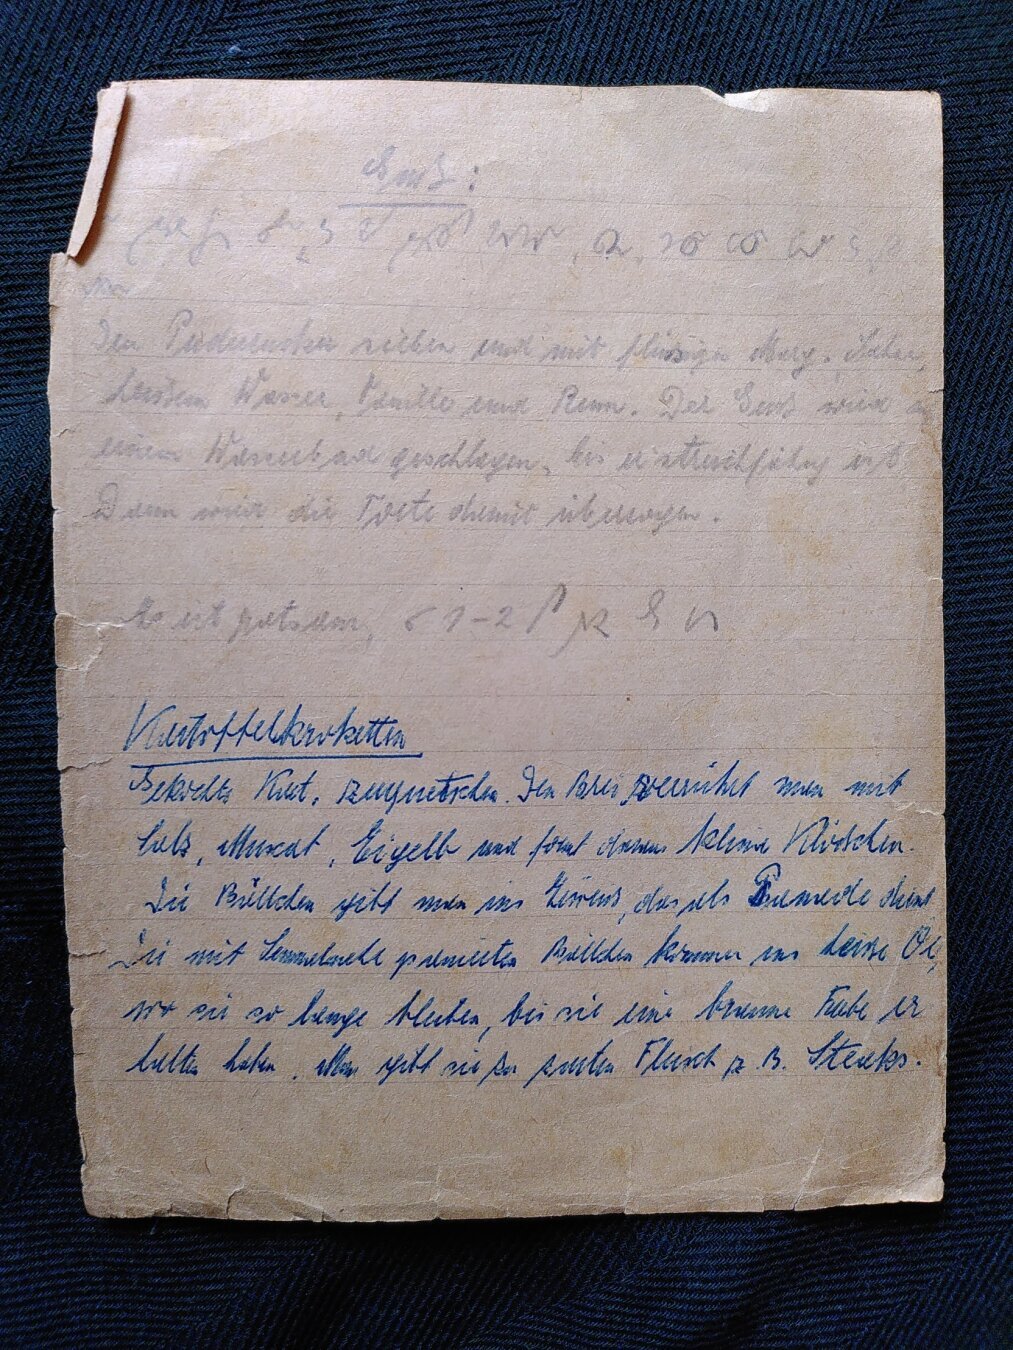 Guß:
Den Puderzucker sieben und mit flüssigen Marg., Sahne,
heissem Wasser, Vanille und Rum. Der Guß wird
einem Wasserbad geschlagen, bis er streichfähig ist
Dann wird die Torte damit überzogen.
Es ist ratsam, 1-2
Kartoffelkroketten
Gekochte Kart. zerquetschen. Den Brei verrührt man mit
Salz, Muscat, Eigelb und formt daraus kleine Klöschen.
Die Bällchen gibt man ins Eiweiss, das als Panade dient
Die mit Semmelmehl panierten Bällchen kommen ins heisse Öl,
wo sie so lange bleiben, bis sie eine braune Farbe er
halten haben. Man gibt sie zu zarten Fleisch z. B. Steaks.